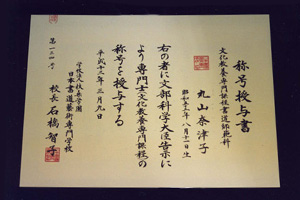 称号授与書
文化教養専門課程書道師範科
丸山奈津子
昭和五六年八月十一日生
右の者に文部科学大臣告示に
より専門士文化教養専門課程の
称号を授与する
平成十三年三月九日
学校法人 長学園
日本書道芸術専門学校
校長 石橋智子
第一二一号